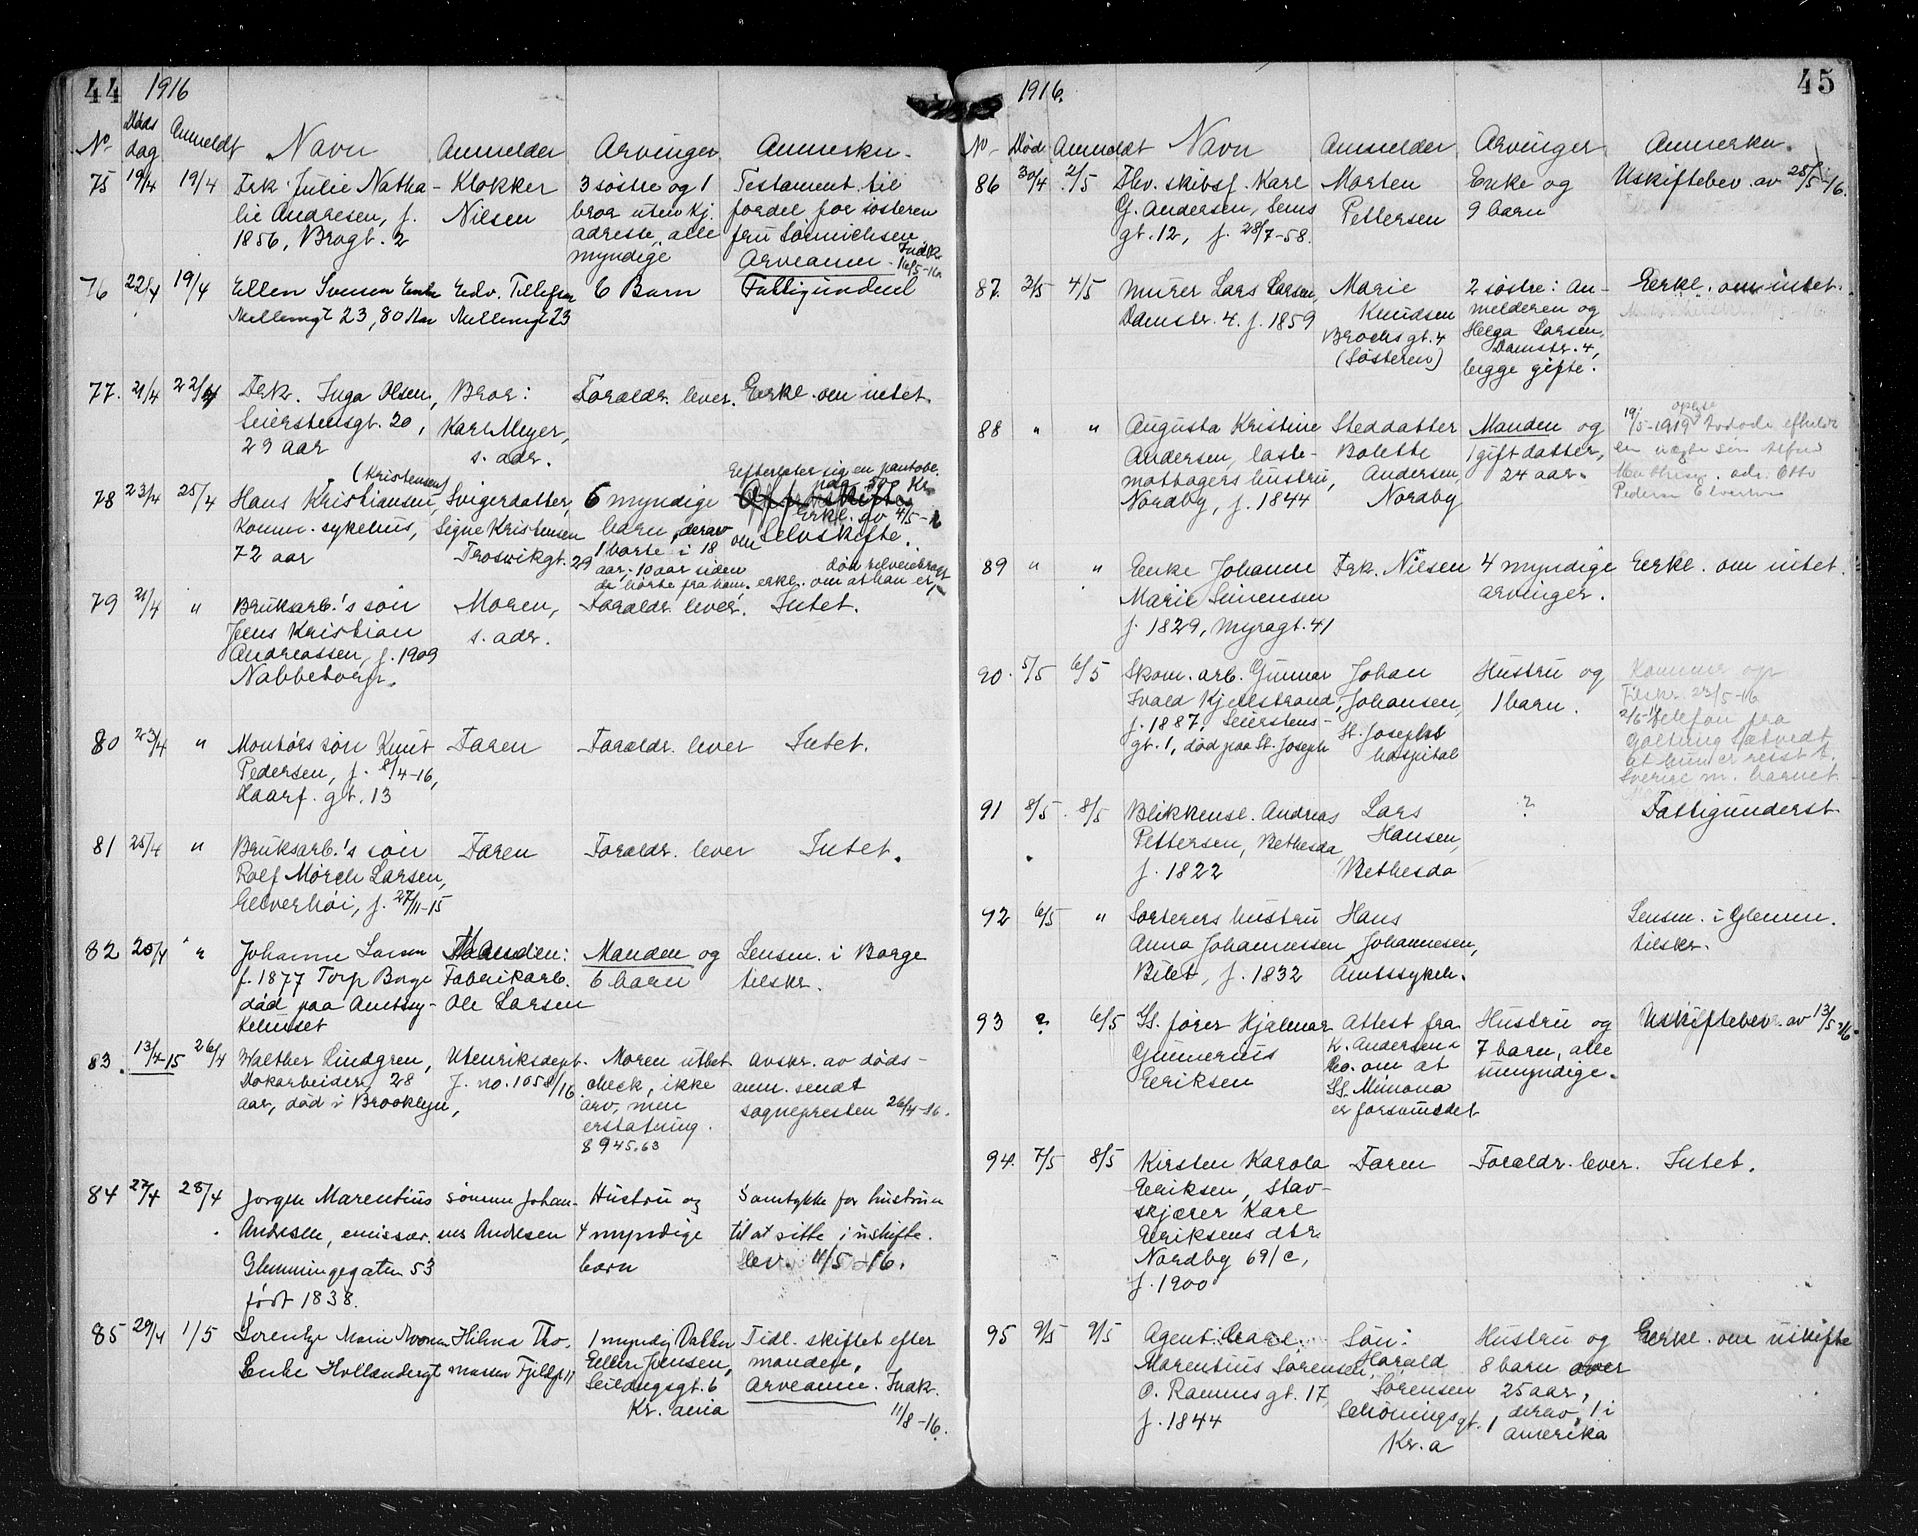 44 1916
No Døds dag Anmeldt Navn Anmelder Arvinger Anmerkn.
75 19/4 19/4 Frk. Julie Natha- Klokker 3 søstre og 1 Testament til
lie Andresen, f. Nilsen bror uten kj. fordel for søsteren
1856, Brogt. 2 adresse, alle fru
myndige Arveanm. Indk. 16/5-16.
76 22/4 19/4 Ellen Svensen Enke Edv. Tellefsen 6 Barn Fattigunderst
Mellemgt 23, 80 Aar Mellemgt 23
77. 21/4 22/4 Frk. Inga Olsen, Bror: Foreldr. lever. Erkl. om intet.
Seierstensgt. 20, Karl Meyer,
29 aar s. adr.
78 23/4 25/4 Hans Kristiansen, (Kristensen) Svigerdatter, 6 myndige Efterlater sig en pantobl.
Komm. sykehus, Signe Kristensen barn, derav Erkl. av 4/5-16
72 aar Trosvikgt. 29 1 borte i 18 om selvskifte.
aar, 10 aar siden
de hørte fra ham, erkl. om at han er død
79 21/4 " Bruksarb.'s søn Moren, Foreldr. lever. Intet.
Jens Kristian s. adr.
Andreassen, f. 1909
Nabbetorp.
80 23/4 " Montørs søn Knut Faren Foreldr. lever Intet.
Pedersen, f. 2/4-16,
Haarf. gt. 13
81 25/4 " Bruksarb.'s søn Faren Foreldr. lever Intet.
Rolf Mørch Larsen,
Gelverhøi, f. 27/11-15
82 25/4 " Johanne Larsen Manden: Manden og Lensm. i Borge
f. 1877 Torp Borge Fabrikarb. 6 barn tilskr.
død paa Amtssy- Ole Larsen
kehuset
83. 13/4-15 26/4 Walther Lindgren, Utenriksdept. Moren utbet. Avskr. av døds-
Dokarbeider, 28 J. no. 1058/16 check, ikke anm. sendt
aar, død i Brooklyn, arv, men sognepresten 26/4-16.
erstatning.
8945.63
84 27/4 28/4 Jørgen Marentius sønnen Johan- Hustru og Samtykke for hustruen
Andresen, emissær. nes Andresen 4 myndige til at sitte i uskifte.
Glemmingegaten 53 barn Lev. 11/5 16.
født 1838.
85 29/4 1/5 Lorentze Marie Hilma Tho- 1 myndig Datter Tidl. skiftet efter
Enke Hollendergt massen Fjeldgt 11 Ellen Jensen, manden.
Seildugsgt. 6 Arveanm. Indk.
Kr. ania 11/8-16.
1916. 45
No Død Anmeldt Navn Anmelder Arvinger Anmerkn.
86 30/4 2/5 Fhv. skibsf. Karl Morten Enke og Uskiftebev. av 25/5-16.
G. Andersen, Sems Pettersen 9 barn
gt. 12, f. 28/7-58.
87. 3/5 4/5 Murer Lars Larsen, Marie 2 søstre: An- Erkl. om intet.
Damstr. 4. f. 1859 Knudsen melderen og
Brochsgt. 4 Helga Larsen,
(Søsteren) Damstr. 4,
begge gifte.
88 " " Augusta Kristine Steddatter Manden og
Andersen, laste- Bolette 1 gift datter,
mottagers hustru, Andersen, 24 aar.
Nordby, f. 1844 Nordby
89 " " Enke Johanne Frk. Nilsen 4 myndige Erkl. om intet.
Marie Simensen arvinger.
f. 1829, Myragt. 41
90. 5/5 6/5 Skom. arb. Gunnar Johan Hustru og Kommer op
Ivald Kjellstrand, Johansen, 1 barn. Tilskr. 22/5-16
f. 1887, Seierstens- St. Josephs 2/6-16 telefon fra
gt. 1, død paa St. Joseph hospital
at hun er reist t.
Sverige m. barnet.
91 8/5 8/5 Blikkensl. Andreas Lars ? Fattigunderst
Pettersen, Bethesda, Hansen,
f. 1822 Bethesda
92 6/5 " Sorterers hustru Hans Lensm. i Glemm.
Anna Johannessen Johannesen, tilskr.
Bilet, f. 1832 Amtssykeh.
93 ? 6/5 Ss. fører Hjalmar Attest fra Hustru og Uskiftebev. av 13/5-16.
Gunnerius K. Andersen & 7 barn, alle
Eeriksen Co. om at umyndige.
Ss. Mimona
er forsvundet
94. 7/5 8/5 Kirsten Karola Faren Foreldr. lever. Intet.
Eeriksen, Stav-
skjærer Karl
Eeriksens dtr.
Nordby 69/c,
f. 1900
95 9/5 9/5 Agent Carl Søn: Hustru og Erkl. om uskifte
Marentius Sørensen, Harald 8 barn over
O. Ramms gt. 17, Sørensen 25 aar,
f. 1844 Schøningsgt. 1 derav 1 i
Kr.a Amerika